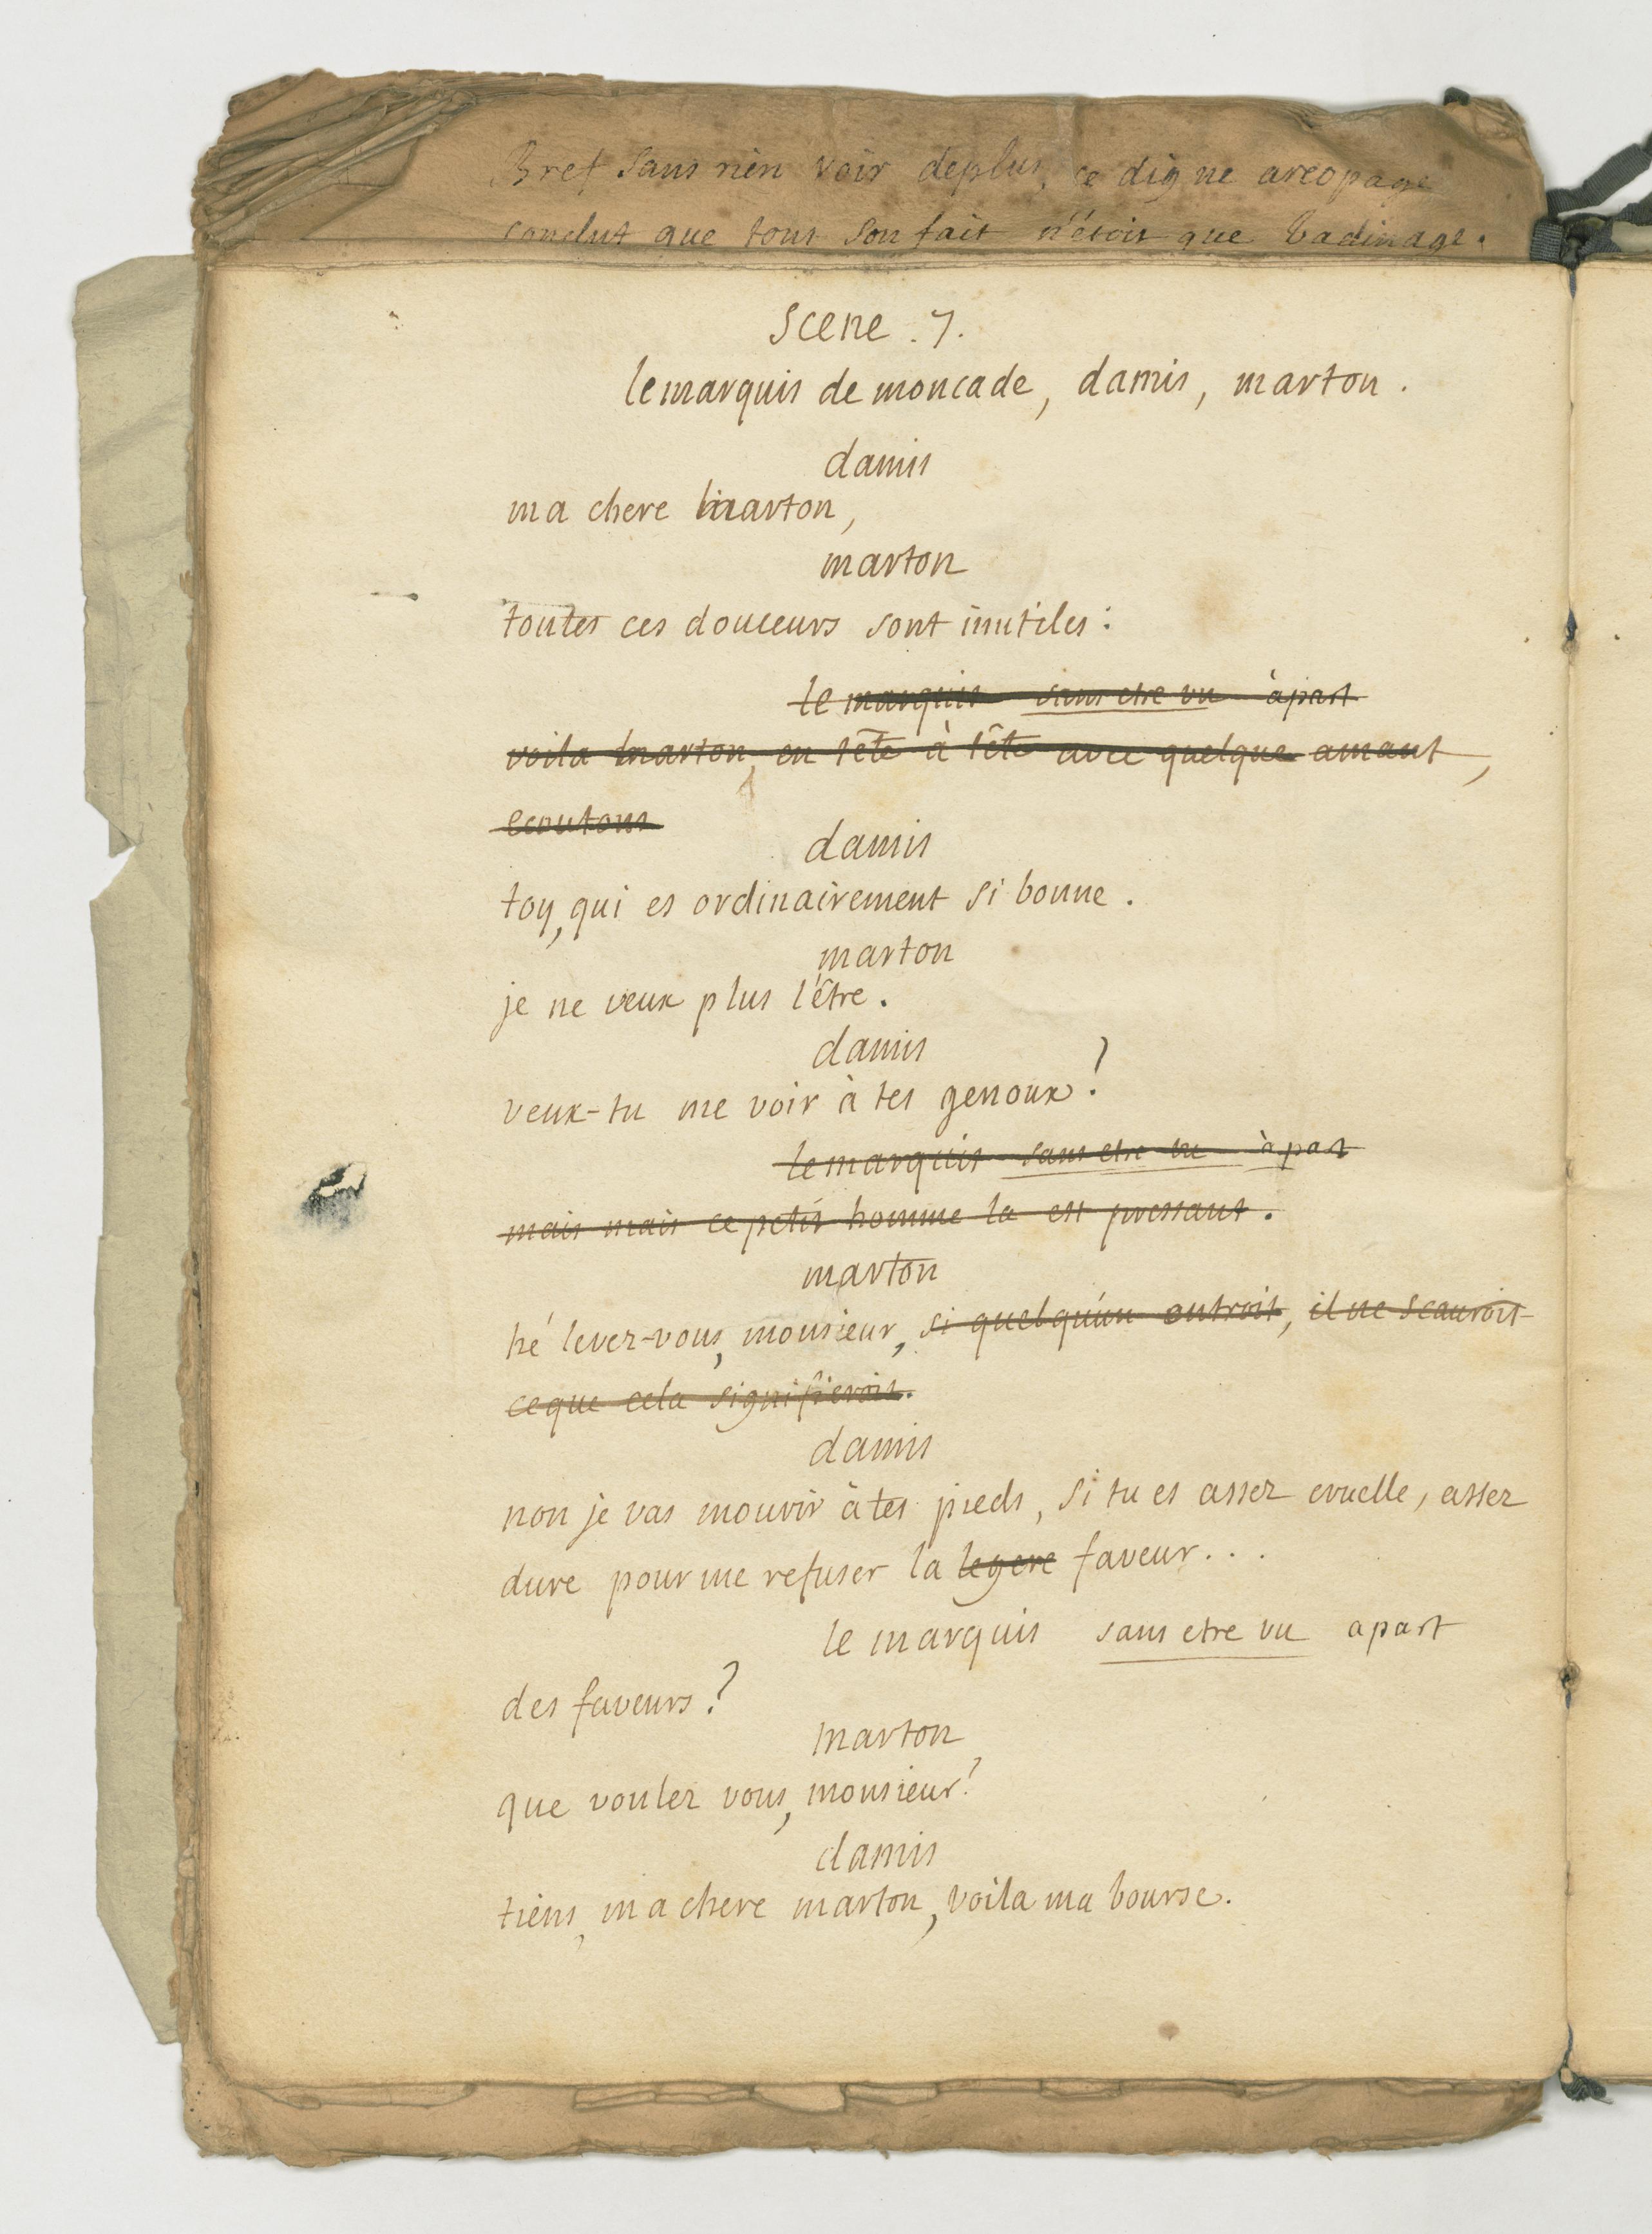 Bref sans rien voir deplus, ce digne areopage
conclut que tout son fait n'étoit que badinage.
scene . 7.
le marquis de moncade, damis, marton.
damis
ma chere marton,
marton
toutes ces douceurs sont inutiles :
le marquis sans etre vu à part
voila marton, en tête à tête avec quelque amant,
ecoutons
damis
toy, qui es ordinairement si bonne.
marton
je ne veux plus l'être.
damis
veux-tu me voir à tes genoux ?
le marquis sans etre vu à part
mais mais ce petit homme la est pressant.
marton
hé levez-vous, monsieur, si quelqu'un entroit, il ne scauroit
ce que cela signifieroit.
damis
non je vas mourir à tes pieds, si tu es assez cruelle, assez
dure pour me refuser la legere faveur...
le marquis sans etre vu a part
des faveurs ?
marton
que voulez vous, monsieur?
damis
tiens, ma chere marton, voila ma bourse.